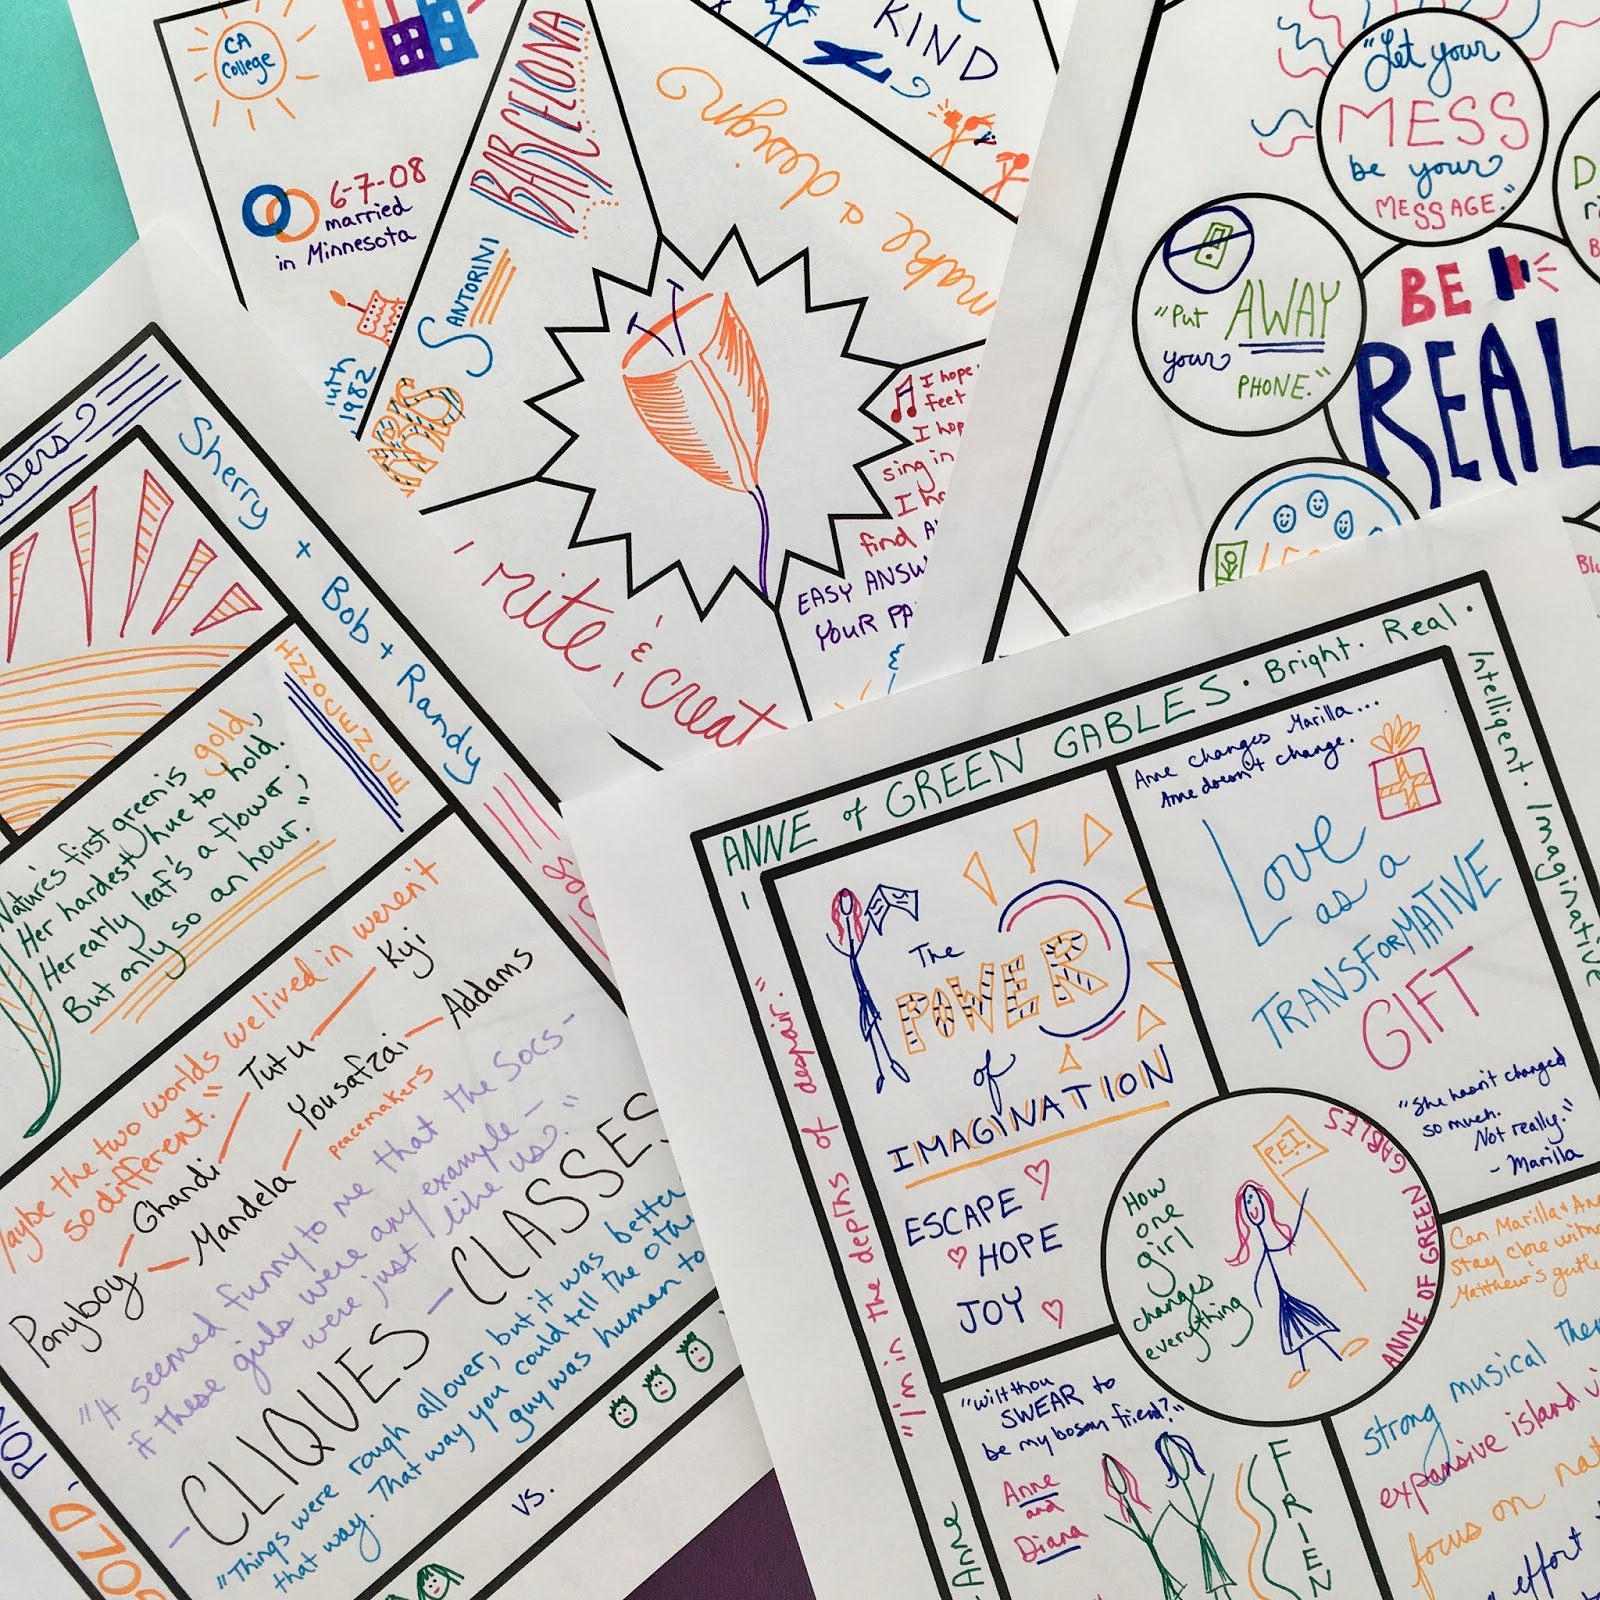 CA
College
6-7-08
married
in Minnesota
1982
BARCELONA
SANTORINI
KIND
make a design
I hope
feet
sing in
find
EASY
YOUR
"Let your
MESS
be your
MESSAGE."
"Put
AWAY
your
PHONE."
BE
REAL
Sherry + Bob + Randy
Nature's first green is gold,
Her hardest hue to hold.
Her early leaf's a flower;
But only so an hour."
Maybe the two worlds we lived in weren't
so different."
Ponyboy
Ghandi
Tutu
Kyi
Mandela
Yousafzai
Addams
peacemakers
"It seemed funny to me that the Socs -
if these girls were any example -
were just like us."
- CLIQUES - CLASSES
"Things were rough all over, but it was better
that way. That way you could tell the
guy was human
vs.
GOLD
rite & creat
ANNE of GREEN GABLES. Bright. Real.
Intelligent. Imaginative
"I'm in the depths of despair."
The
POWER
of
IMAGINATION
ESCAPE
HOPE
JOY
Anne changes Marilla...
Anne doesn't change.
Love
as a
TRANSFORMATIVE
GIFT
"She hasn't changed
so much.
Not really."
- Marilla
How
one
girl
changes
everything
P.E.I.
ANNE OF GREEN GABLES
Can Marilla &
stay close
Matthew's
"Wilt thou
SWEAR to
be my bosom friend?"
Anne
and
Diana
FRIEN
-Anne
strong musical
expansive island
focus on
effort